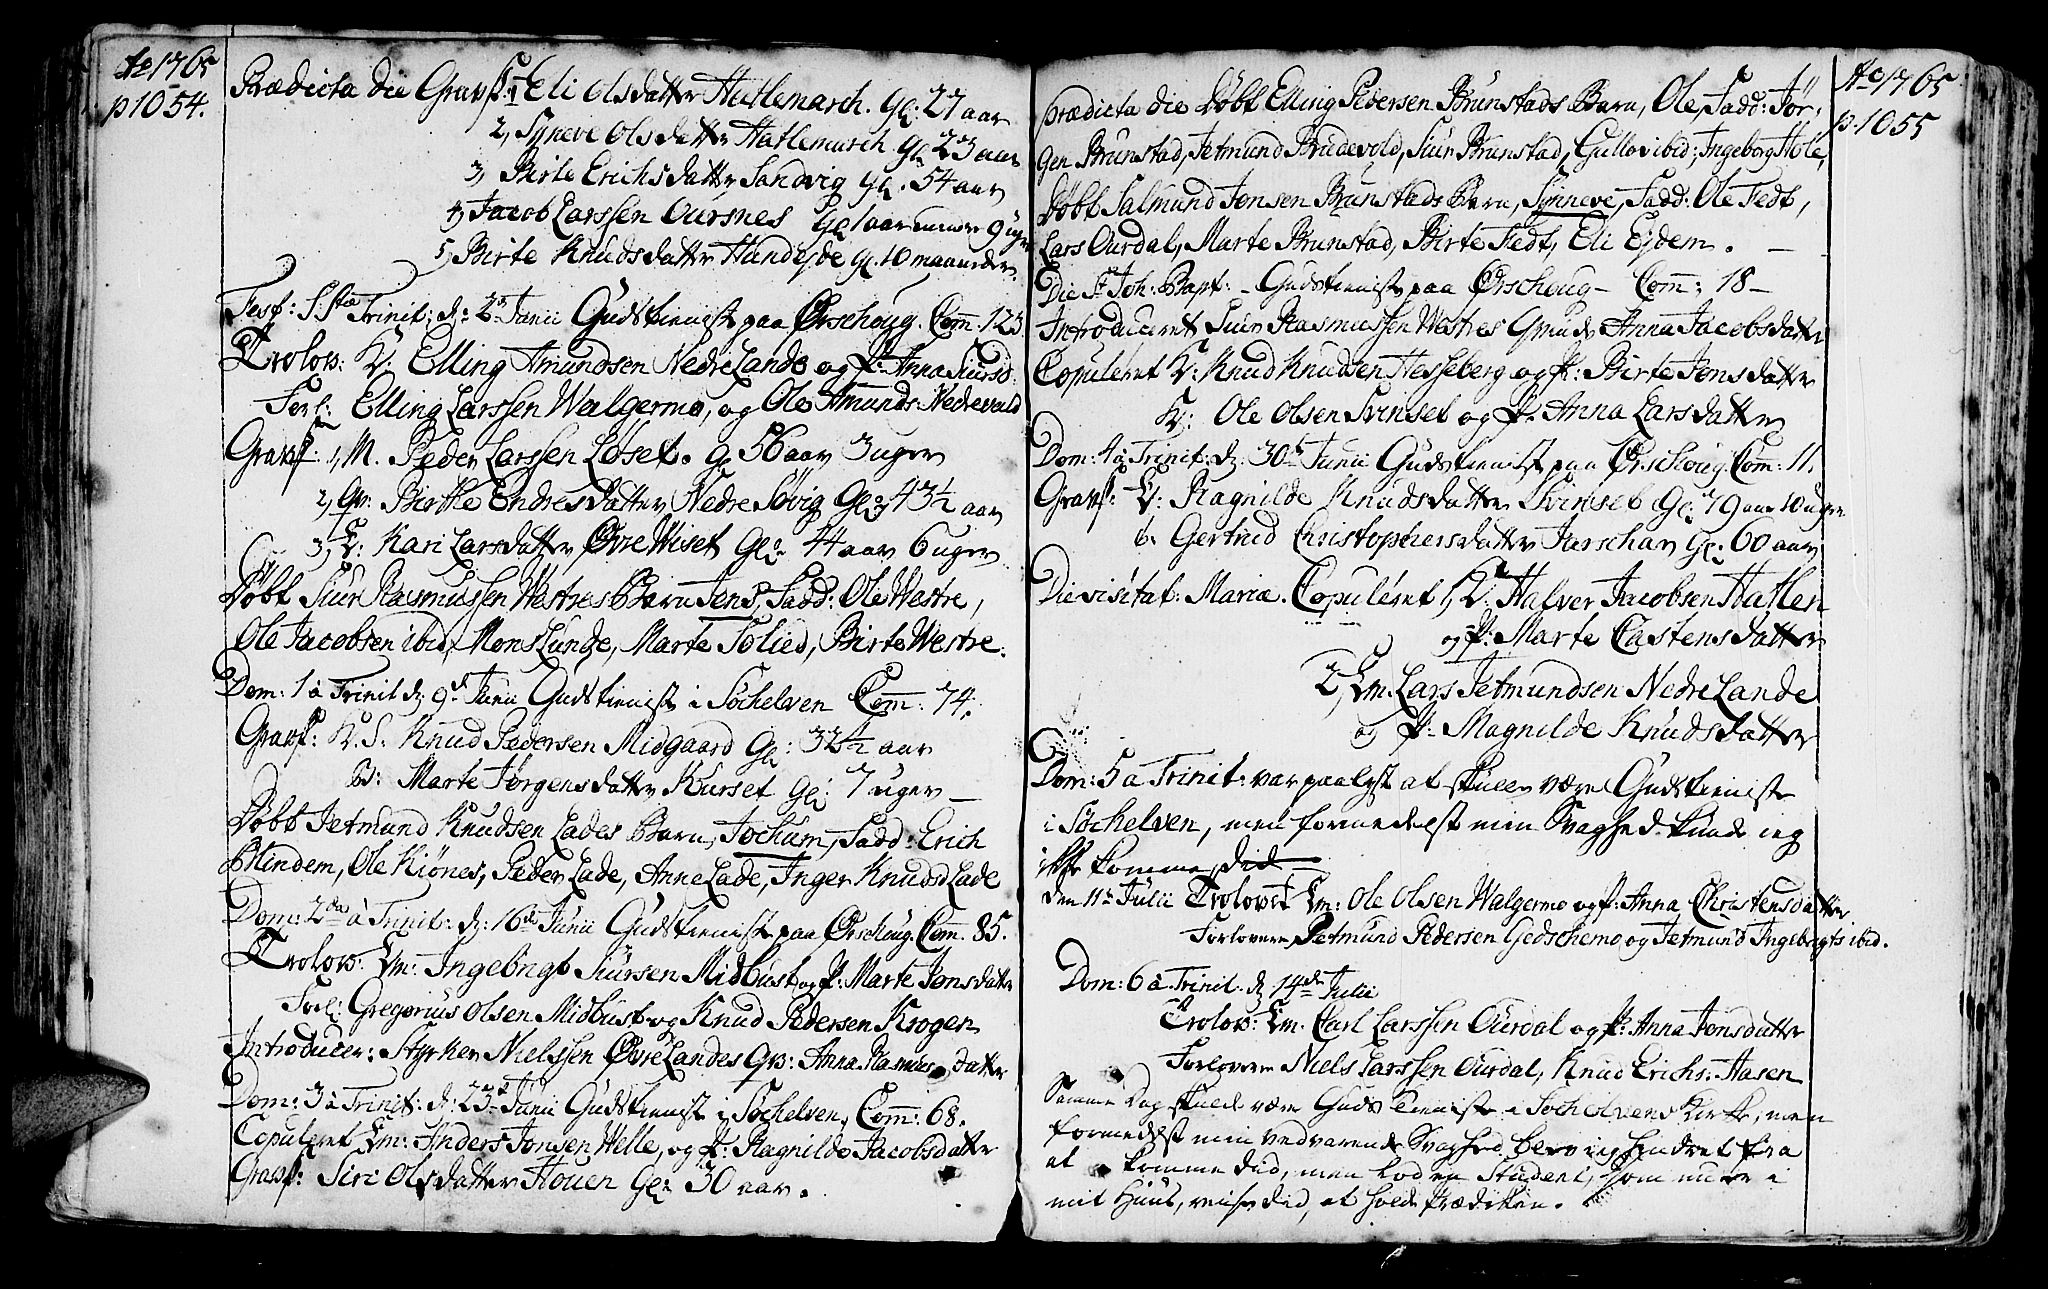 Ao 1765
p 1054.
Prædicta die Grapf: 1, Eli Olsdatter Hatlemarch. Gl: 27 aar
2, Syneve Olsdatter Hatlemarch Gl 23 aar
3, Birte Erichsdatter Sandvig Gl. 54 aar
4, Jacob Larssen Oursnes Gl 1 aar minder 9 uger
5, Birte Knudsdatter Handejde Gl. 10 maaneder.
Fest: S. Stæ Trinit: d: 2d Junii Gudstienist paa Ørschoug. Com: 123
Trolov: K: Elling Amundsen Nedre Lande og P: Anna Siursd:
Forl: Elling Larssen Walgermo, og Ole Amunds: Nedrevald
Grapf: 1, M. Peder Larssen Løset. G 56 aar 3 uger
2, Qv: Birthe Endresdatter Nedre Søvig Gl: 43½ aar
3, L: Kari Larsdatter Øvre Wiset Gl: 44 aar 6 uger
Døbt Siur Rasmussen Westres Barn Jens, Fadd: Ole Westre,
Ole Jacobsen ibid, Mons Lunde, Marte Solied, Birte Westre.
Dom: 1 à Trinit d. 9d Junii Gudstienist i Søchelven Com: 74.
Grapf: K. S. Knud Pedersen Midgaard Gl: 32½ aar
B: Marte Jørgensdatter Kurset Gl: 7 uger
Døbt Jetmund Knudsen Lades Barn, Jochum, Fadd: Erich
Blindem, Ole Kiønes, Peder Lade, Anne Lade, Inger Knudsd Lade
Dom: 2da à Trinit: d: 16d Junii Gudstienist paa Ørschoug. Com. 85.
Trolov: Em: Ingebrigt Siursen Midbust og P: Marte Jonsdatter
Forl: Gregorius Olsen Midbust og Knud Pedersen Krogen
Introducer: Styrker Nielssen Øvre Landes Qv: Anna Rasmusdatter
Dom: 3 à Trinit: d: 23d Junii Gudstienist i Søchelven, Com: 68.
Copuleret Em: Anders Jonsen Welle, og P: Ragnilde Jacobsdatter
Grapf: Siri Olsdatter Houen Gl: 30 aar.
Ao 1765
p. 1055
Prædicta die Døbt Elling Pedersen Brunstads Barn, Ole, Fadd: Jør-
gen Brunstad, Jetmund Brudevold, Siur Brunstad, Gullov ibid; Ingeborg Hole,
Døbt Salmund Jonsen Brunstads Barn, Synneve, Fadd: Ole Fedt,
Lars Ourdal, Marte Brunstad, Birte Fedt, Eli Ejdem.
Die St Joh: Bapt: - Gudstienist paa Ørschoug - Com: 18 -
Introduceret Siur Rasmussen Westres Qvinde Anna Jacobsdatter
Copuleret K: Knud Knudsen Hesseberg og P: Birte Jonsdatter
K: Ole Olsen Svinset og P. Anna Larsdatter
Dom: 4 à Trinit: d: 30d Junii Gudstienist paa Ørschoug Com: 11.
Grapf: L: Ragnilde Knudsdatter Svinset Gl: 79 aar 10 uger
b. Gertrud Christophersdatter Jarschar Gl: 60 aar
Die visitat: Mariæ. Copuleret 1, K: Halver Jacobsen Hatlen
og P: Marte Castensdatter
2, Em. Lars Jetmundsen Nedre Lande
og P: Magnilde Knudsdatter
Dom: 5 à Trinit: var paalyst at skulle være Gudstienist
i Søchelven, men formedelst min Svaghed kunde ieg
ikke komme did
Den 11te Julii Troloved Em: Ole Olsen Walgermo og P: Anna Christensdatter
Forlovere Jetmund Pedersen Gedschemo, og Jetmund Ingebrigts ibid.
Dom: 6 à Trinit. d. 14de Julii
Trolov: Em. Carl Larssen Ourdal og P: Anna Jonsdatter
Forlovere Niels Larssen Ourdal, Knud Erichs: Aasen
Samme Dag skulde være Guds tieniste i Søchelvens Kirke, men
formedelst min vedvarende Svaghed blev ieg hindret fra
at komme did, men lod en Student, som nu er i
mit Huus, reise did, at holde Prædiken.